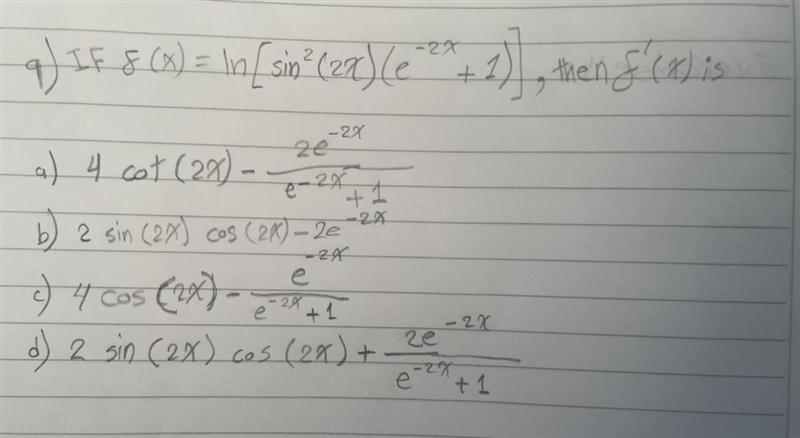 9) IF f(x) = ln[sin²(2x)(e⁻²ˣ + 1)], then f'(x) is
a) 4 cot(2x) - 2e⁻²ˣ / e⁻²ˣ + 1
b) 2 sin(2x) cos(2x) - 2e⁻²ˣ
c) 4 cos(2x) - e⁻²ˣ / e⁻²ˣ + 1
d) 2 sin(2x) cos(2x) + 2e⁻²ˣ / e⁻²ˣ + 1